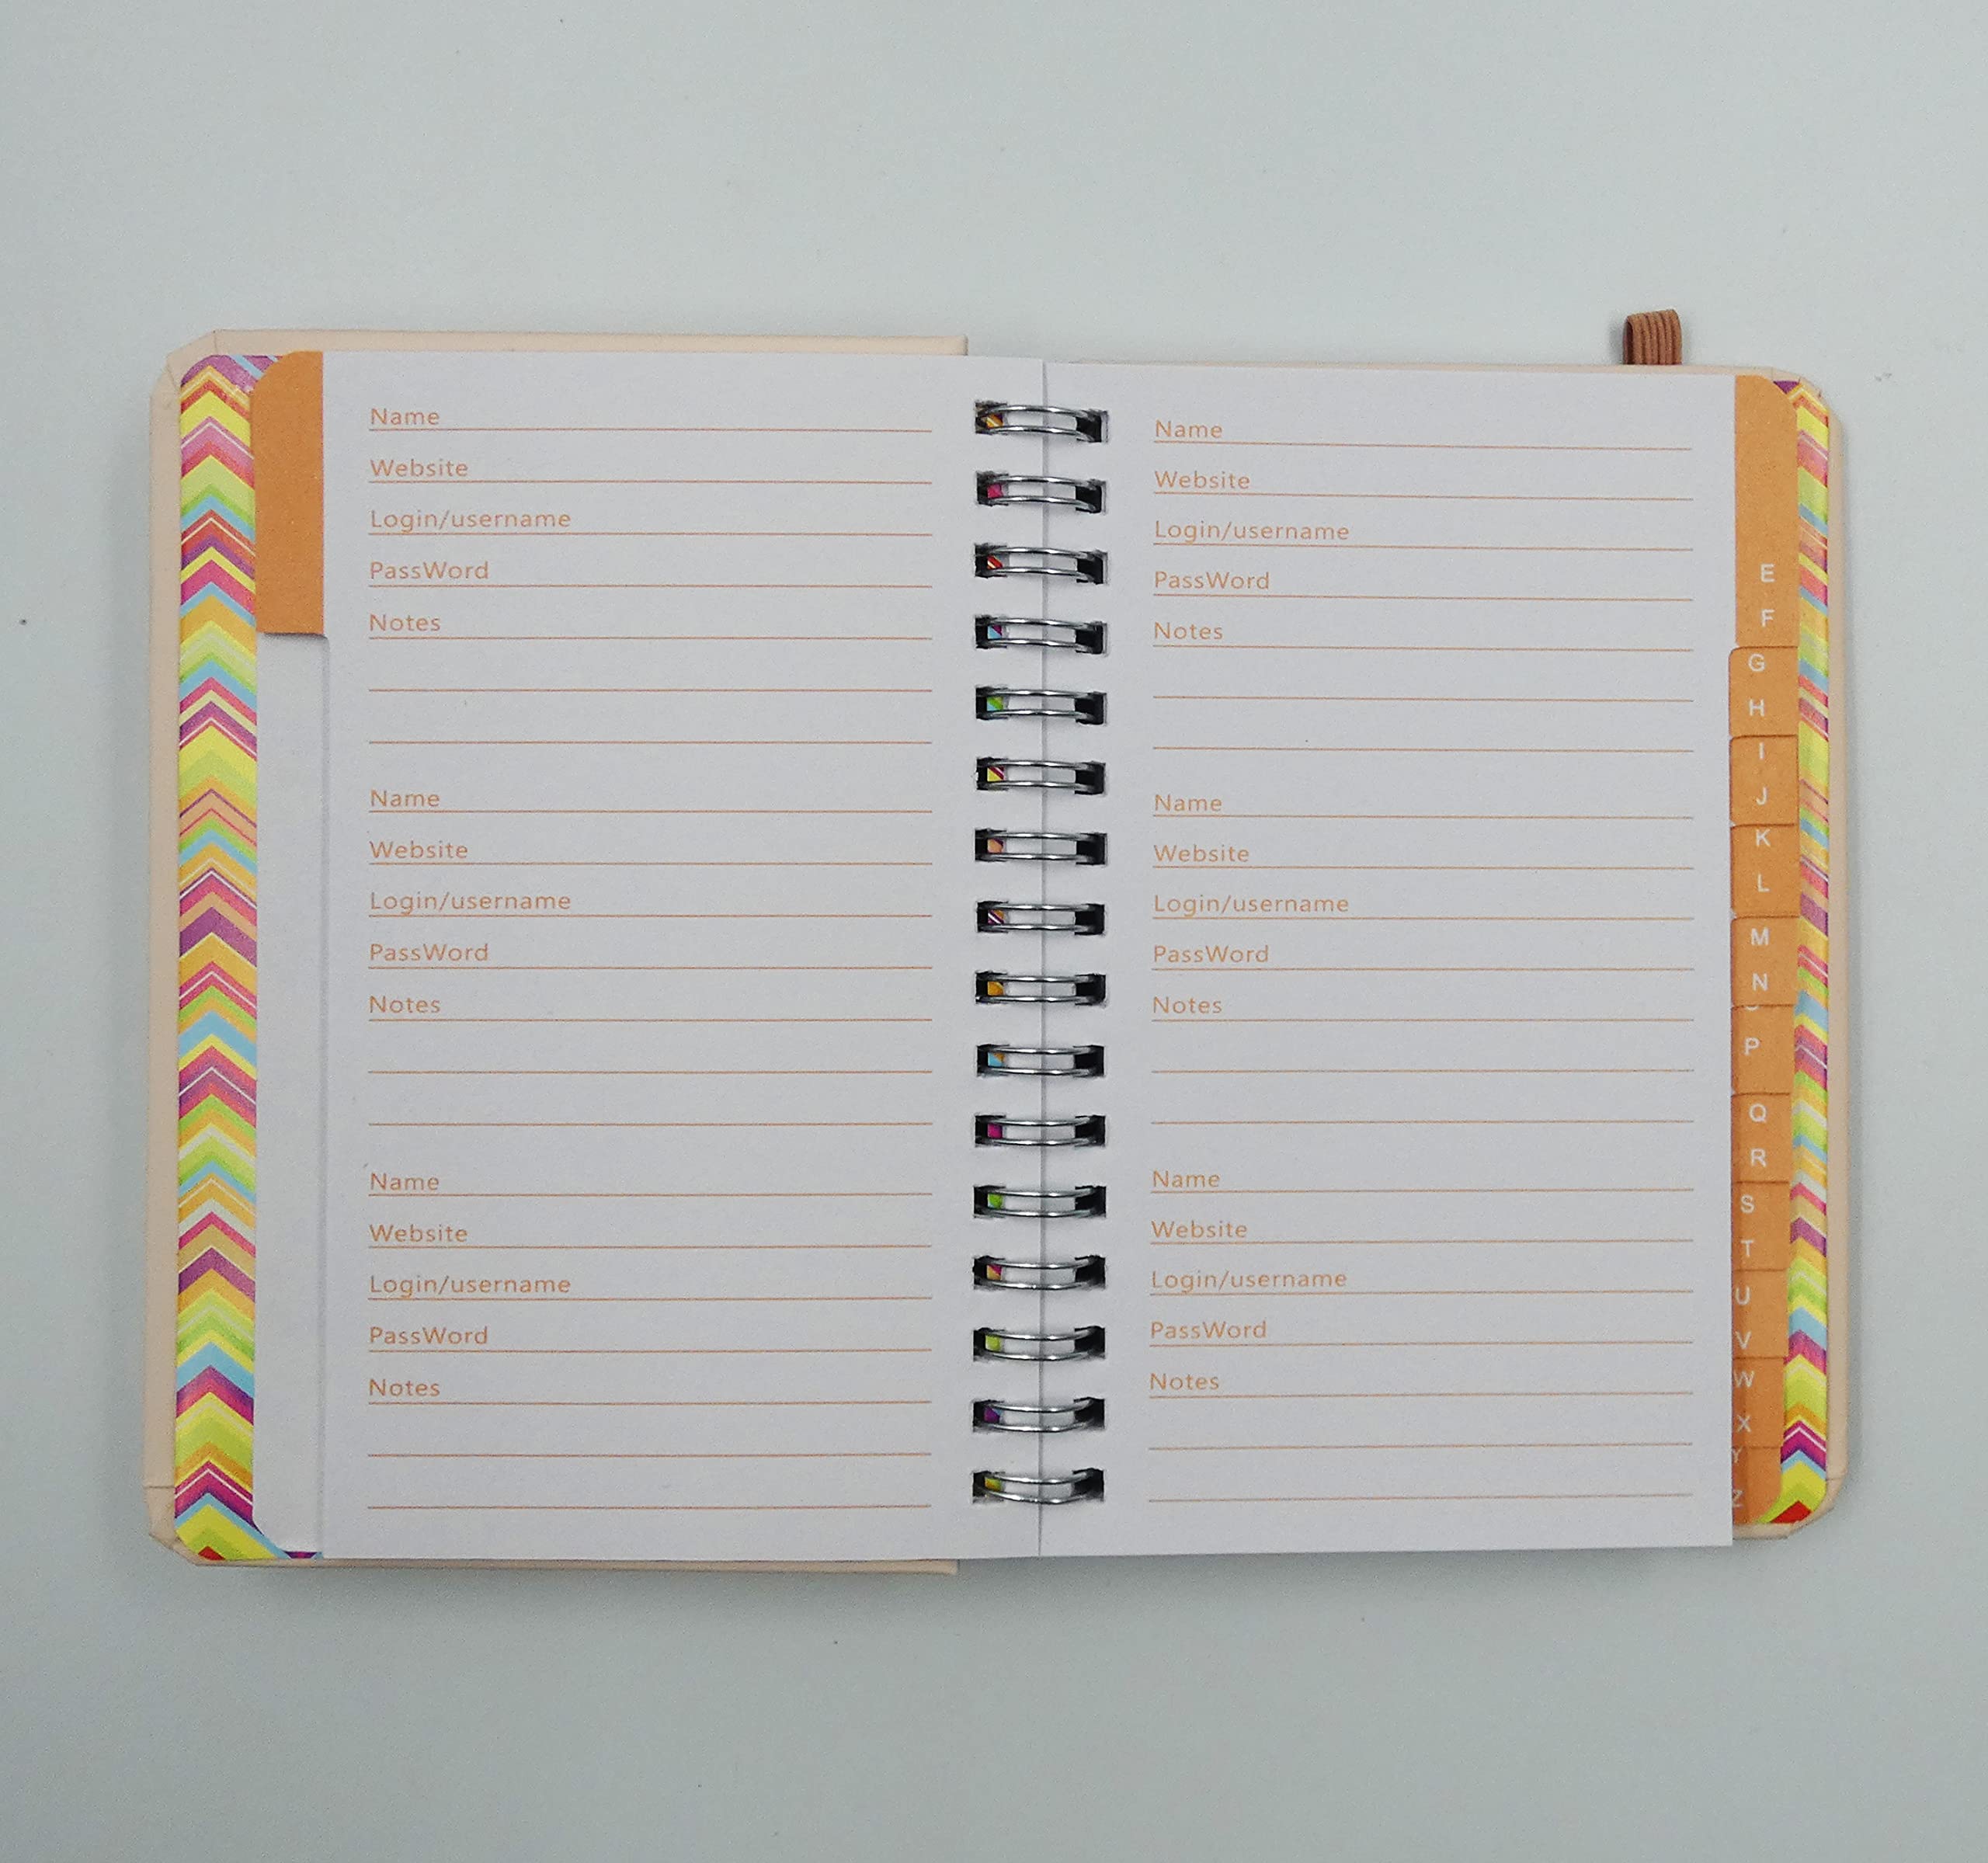 Name
Website
Login/username
PassWord
Notes
Name
Website
Login/username
PassWord
Notes
Name
Website
Login/username
PassWord
Notes
Name
Website
Login/username
PassWord
Notes
Name
Website
Login/username
PassWord
Notes
Name
Website
Login/username
PassWord
Notes
E
F
G
H
I
J
K
L
M
N
P
Q
R
S
T
U
V
W
X
Y
Z